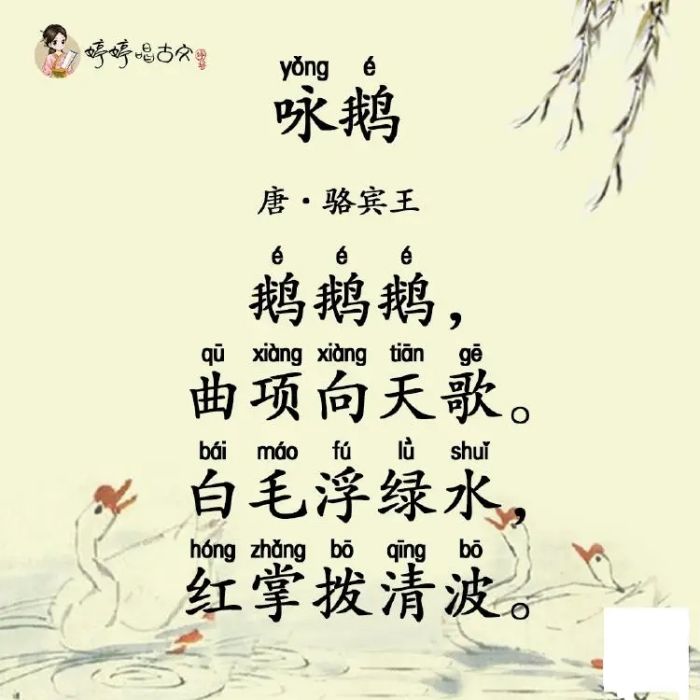 婷婷唱古文
yǒng é
咏鹅
唐·骆宾王
é é é
鹅鹅鹅，
qū xiàng xiàng tiān gē
曲项向天歌。
bái máo fú lǜ shuǐ
白毛浮绿水，
hóng zhǎng bō qīng bō
红掌拨清波。